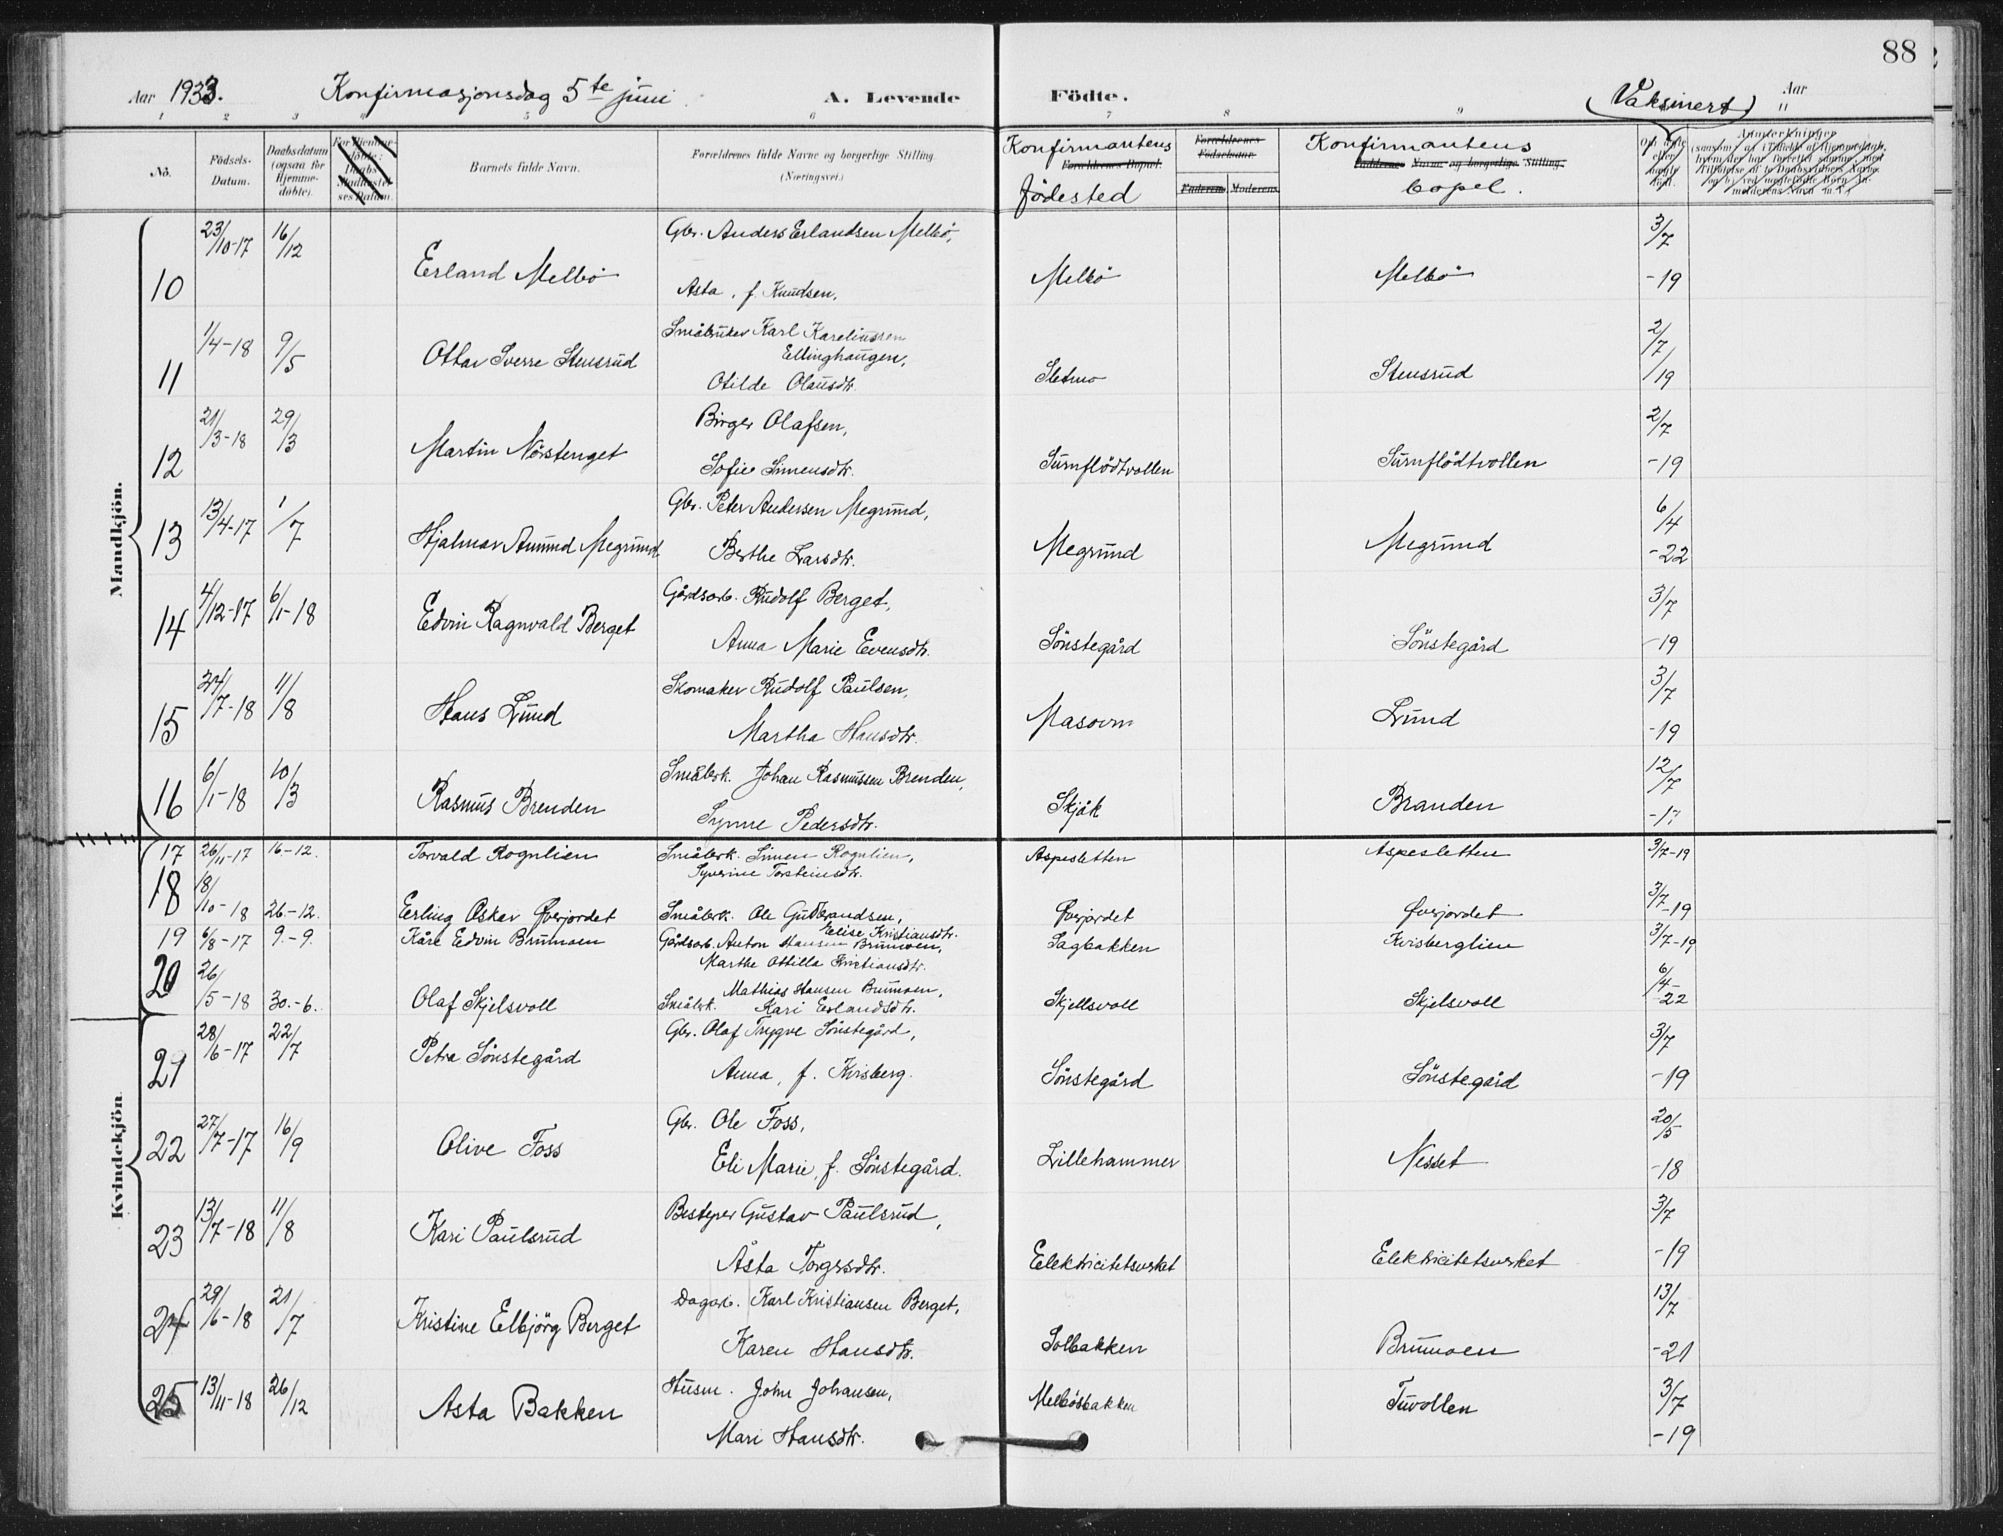 88
Aar 1933. Konfirmasjonsdag 5te juni A. Levende Födte. (Vaksinert) Aar
1 2 3 5 6 7 8 9 11
No. Födsels-Datum. Daabsdatum (ogsaa for Hjemmedöbte). Barnets fulde Navn. Forældrenes fulde Navne og borgerlige Stilling. (Næringsvei.) Konfirmantens födested Konfirmantens bopel.
Forældrenes Bopæl. Forældrenes Födselsaar. Faderens Moderens
Mandkjön.
10 23/10-17 16/12 Erland Melbö Gbr. Anders Erlandsen Melbö, Melbö Melbö 3/7
Asta, f. Knudsen. -19
11 1/4-18 9/5 Ottar Sverre Stensrud Småbruker Karl Kareliussen Sletmo Stensrud 2/7
Ellinghaugen,
Otilde Olausdtr. /19
12 21/3-18 29/3 Martin Nörstenget Birger Olafsen, Surnflödtvollen Surnflödtvollen 2/7
Sofie Simensdtr. -19
13 13/4-17 1/7 Hjalmar Amund Megrund Gbr. Peter Andersen Megrund, Megrund Megrund 6/4
Berthe Larsdtr. -22
14 4/12-17 6/1-18 Edvin Ragnvald Berget Gårdsarb. Rudolf Berget, Sönstegård Sönstegård 3/7
Anna Marie Evensdtr. -19
15 /7-18 11/8 Hans Lund Skomaker Rudolf Paulsen, Masovn Lund 3/7
Martha Hansdtr. -19
16 6/1-18 10/3 Rasmus Brenden Småbrk. Johan Rasmussen Brenden, Skjåk Branden 12/7
Synne Pedersdtr. -17
17 26/11-17 16-12. Torvald Rognlien Småbrk. Simen Rognlien, Aspesletten Aspesletten 3/7-19
Syverine Torsteinsdtr.
18 18/10-18 26-12. Erling Oskar Øverjordet Småbrk. Ole Gudbrandsen, Øverjordet Øverjordet 3/7-19
Elise Kristiansdtr.
19 6/8-17 9.-9. Kåre Edvin Brumoen Gårdsarb. Anton Hansen Brumoen, Sagbakken Kvisberglien 3/7-19
Marthe Ottilla Kristiansdtr.
20 26/5-18 30.-6. Olaf Skjelsvoll Mathias Hansen Brumoen, Skjellsvoll Skjelsvoll 6/4-22
Småbrk. Kari Erlandsdtr.
Kvindekjön.
21 28/6-17 22/7 Petra Sönstegård Gbr. Olaf Trygve Sönstegård, Sönstegård Sönstegård 3/7
Anna, f. Kvisberg. -19
22 27/7-17 16/9 Olive Foss Gbr. Ole Foss, Lillehammer Nesset 20/5
Eli Marie, f. Sönstegård. -18
23 13/7-18 11/8 Kari Paulsrud Bestyrer Gustav Paulsrud, Elektricitetsverket Elektricitetsverket 3/7
Åsta Torgersdtr. -19
24 29/6-18 21/7 Kristine Elbjörg Berget Dagarb. Karl Kristiansen Berget, Solbakken Brumoen 13/7
Karen Hansdtr. -21
25 13/11-18 26/12 Asta Bakken Husm. John Johansen, Melbösbakken Tuvollen 3/7
Mari Hansdtr. -19